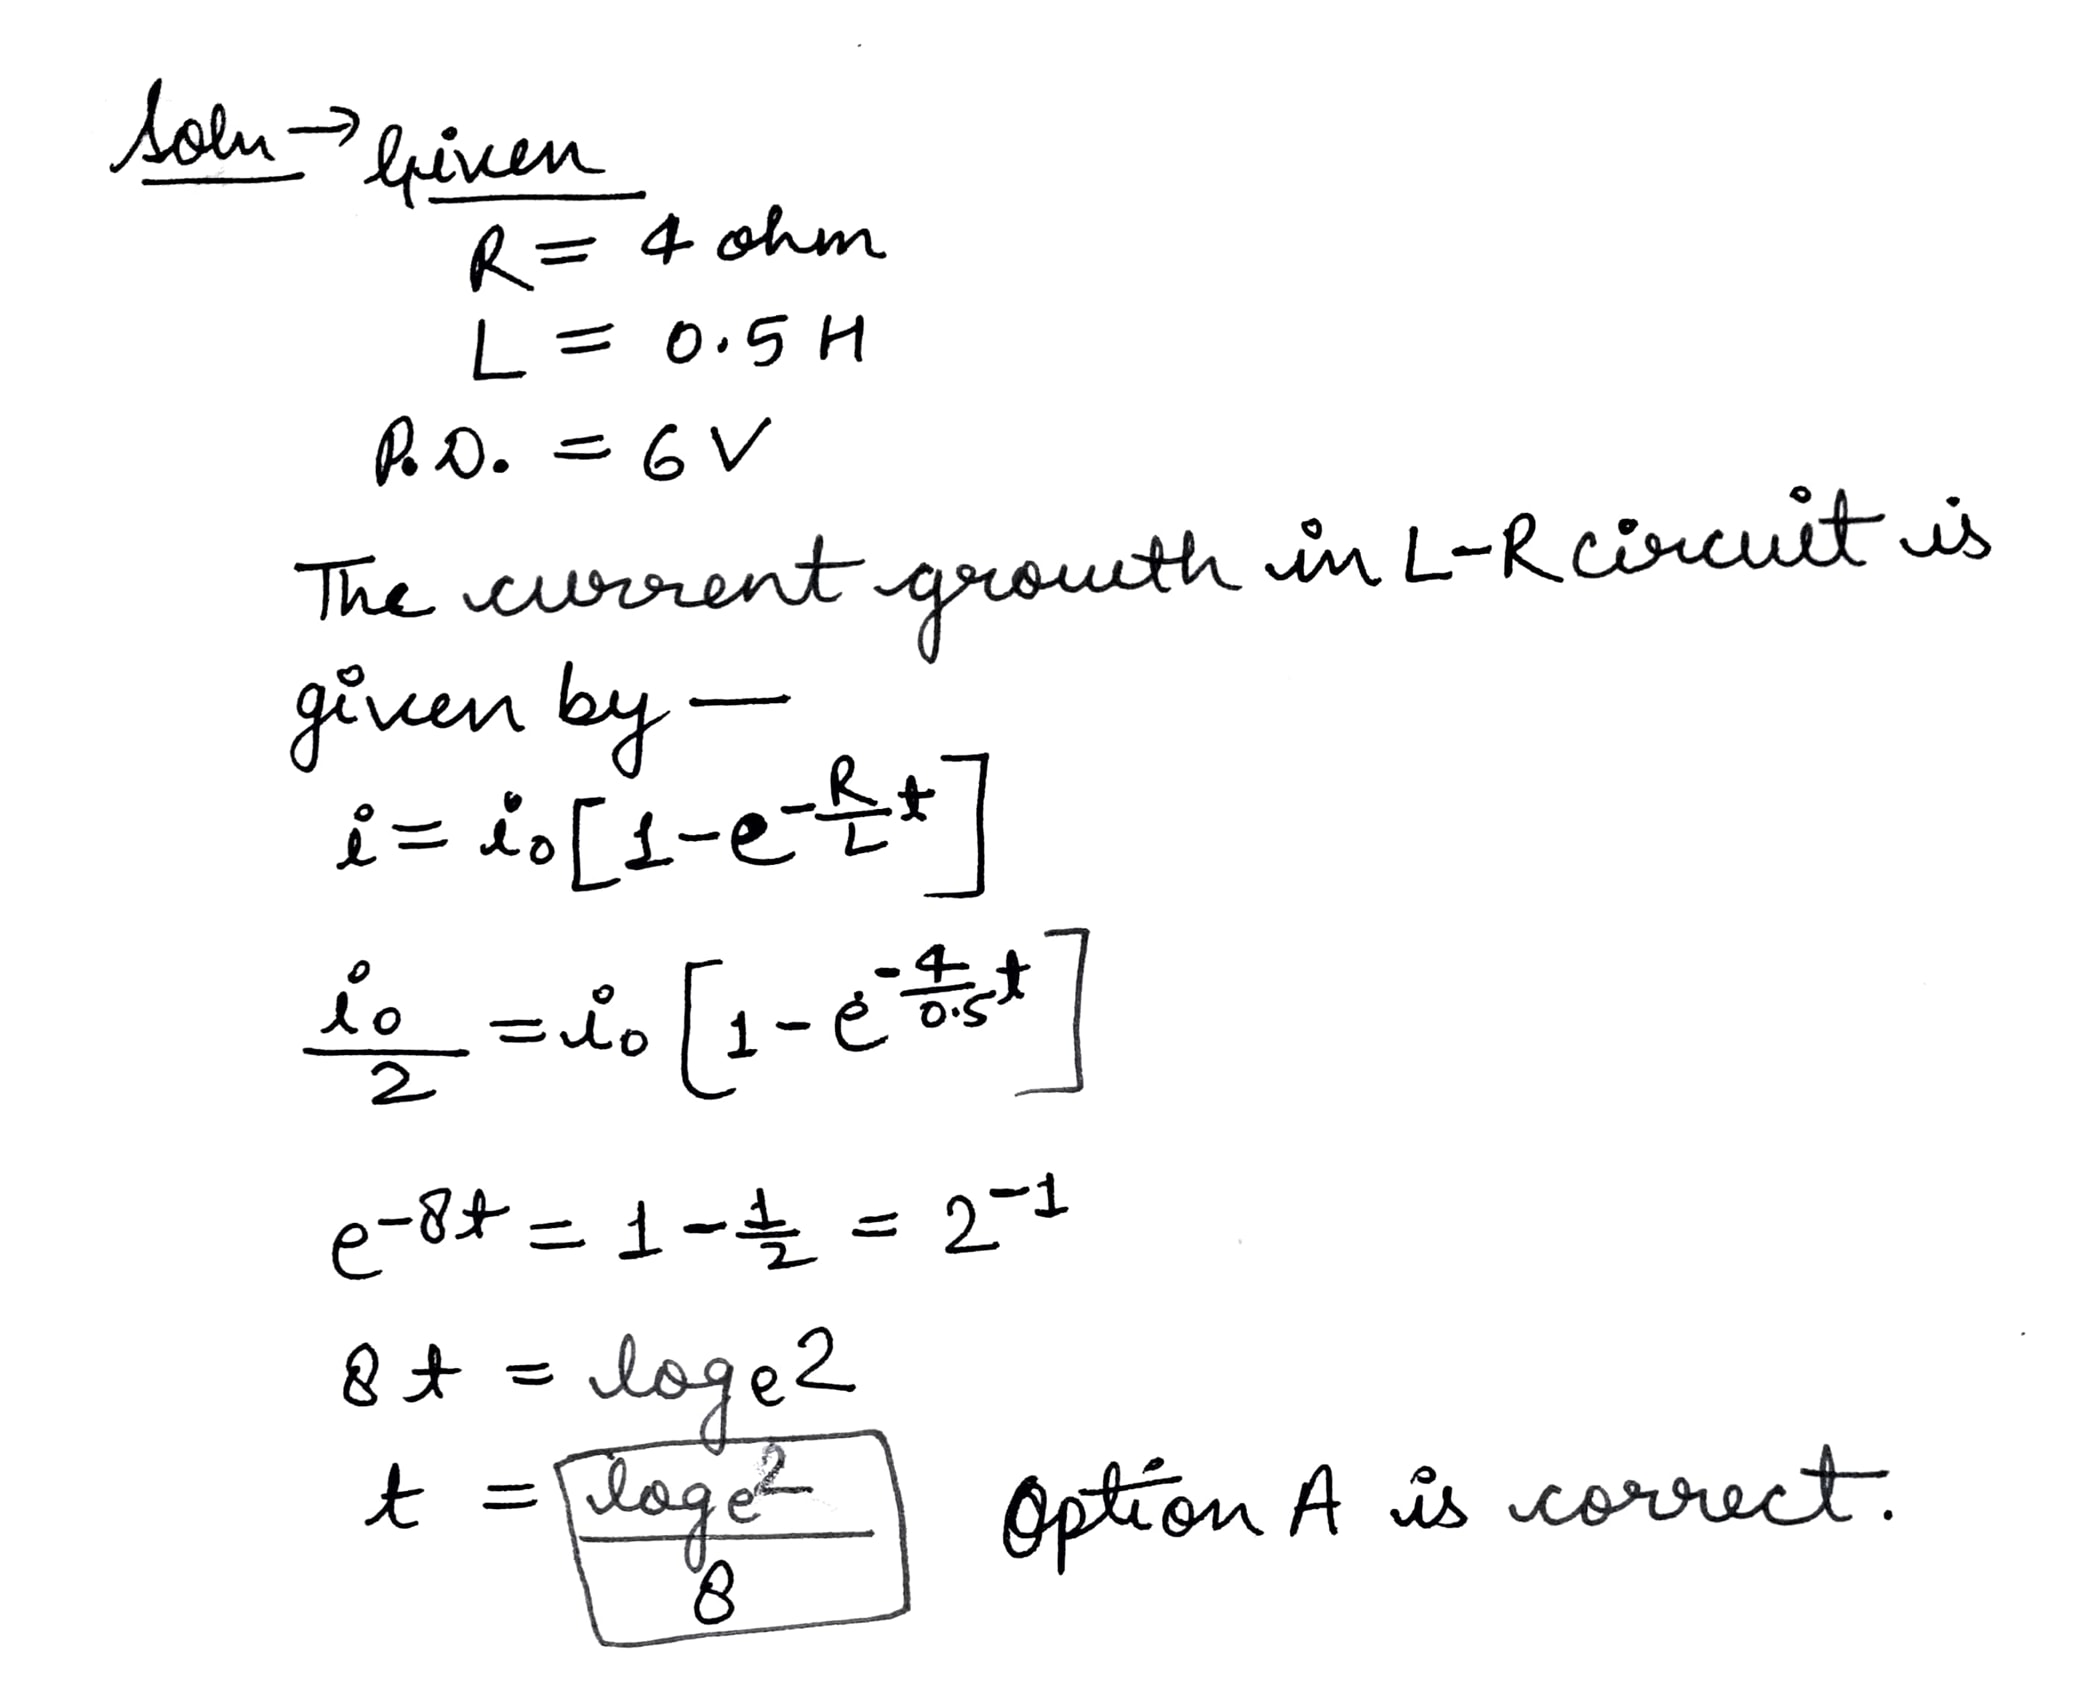 Soln → Given
R = 4 ohm
L = 0.5 H
P.D. = 6 V
The current growth in L-R circuit is
given by —
i = i₀[1-e^{-\frac{R}{L}t}]
\frac{i₀}{2} = i₀[1-e^{-\frac{4}{0.5}t}]
e^{-8t} = 1 - \frac{1}{2} = 2^{-1}
8t = logₑ2
t = \frac{logₑ2}{8} Option A is correct.